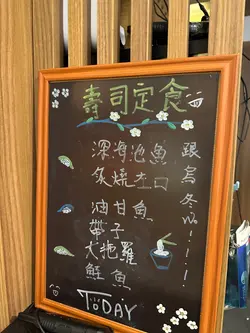 壽司定食
深海池魚
炙燒左口
油甘魚
帶子
大拖羅
鮭魚
跟烏冬
TODAY